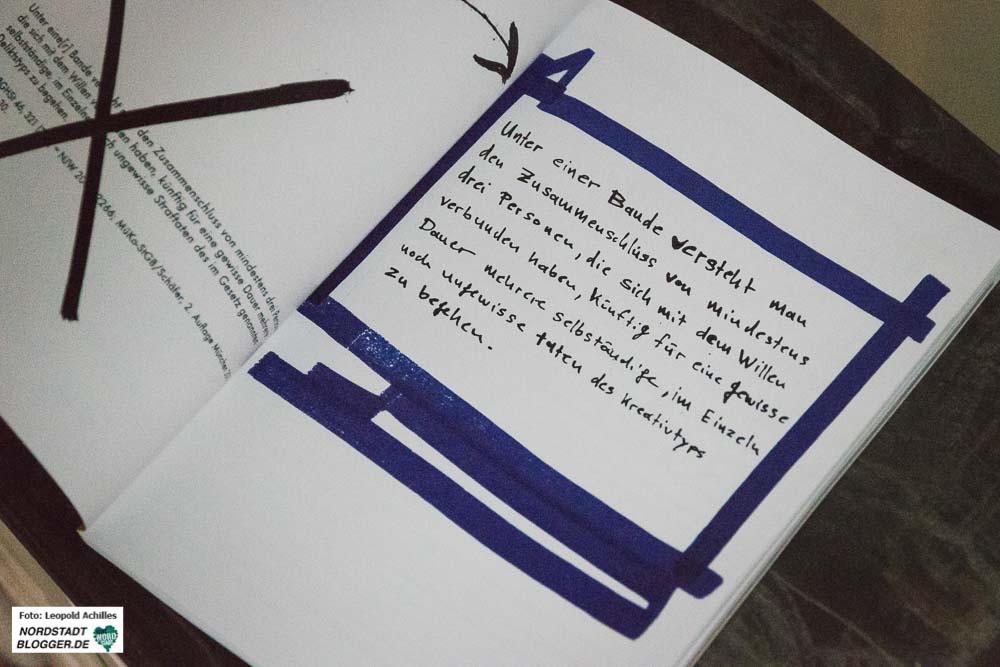 Unter eine[r] Bande ve ht den Zusammenschluss von mindestens drei Pers
die sich mit dem Willen v en haben, künftig für eine gewisse Dauer mehrere
selbstständige, im Einzeln ch ungewisse Straftaten des im Gesetz genannten
Deliktstyps zu begehen.
GHSt 46, 321 NJW 20 2266; MüKo-StGB/Schäfer, 2. Auflage München 20
30.
Unter einer Bande versteht man
den Zusammenschluss von mindestens
drei Personen, die sich mit dem Willen
verbunden haben, künftig für eine gewisse
Dauer mehrere selbständige, im Einzeln
noch ungewisse taten des Kreativtyps
zu begehen.
Foto: Leopold Achilles
NORDSTADT
BLOGGER.DE